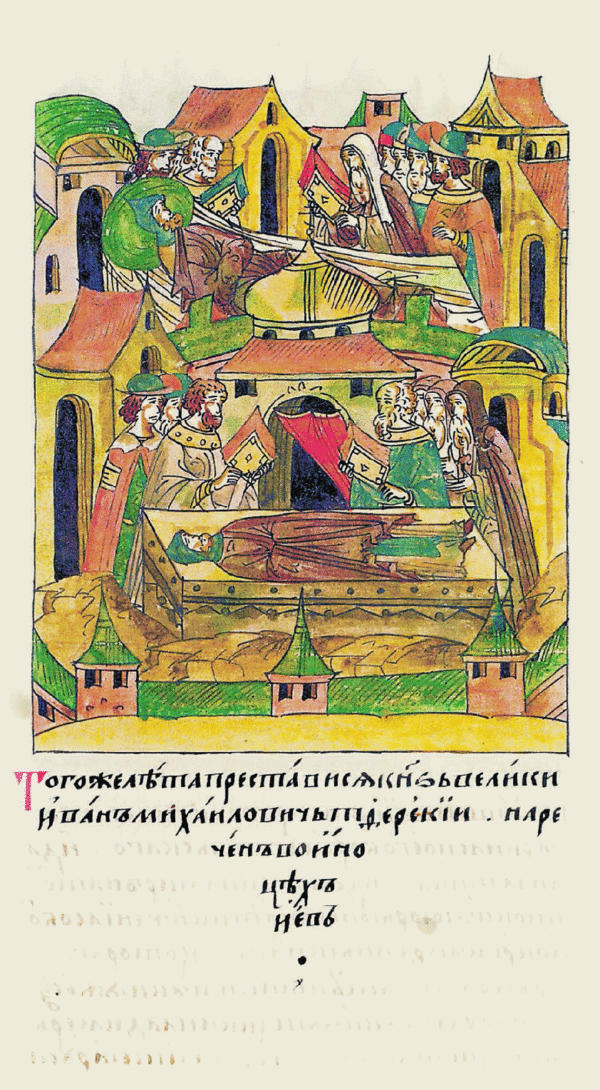 Тогожелѣтапрестависѧкнѧзьвелики
иванъмихаиловичьтверскіи . наре
ченъвоино
цѣхъ
иевъ